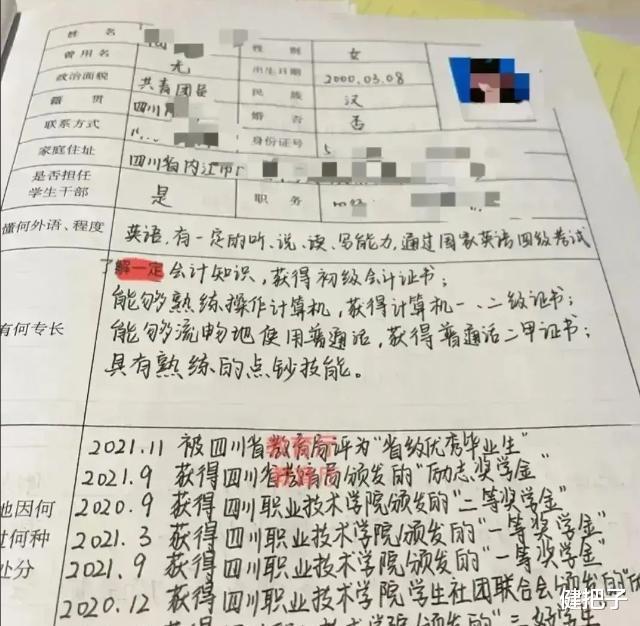 姓 名 性 别 女
曾用名 无 出生日期 2000.03.08
政治面貌 共青团员 民 族 汉
籍 贯 四川 婚 否 否
联系方式 身份证号 5
家庭住址 四川省内江市
是否担任
学生干部 是 职 务
懂何外语、程度 英语,有一定的听、说、读、写能力,通过国家英语四级考试
了解一定会计知识,获得初级会计证书;
能够熟练操作计算机,获得计算机一、二级证书;
有何专长 能够流畅地使用普通话,获得普通话二甲证书;
具有熟练的点钞技能。
2021.11 被四川省教育局评为“省级优秀毕业生”
2021.9 获得四川省教育局颁发的“励志奖学金”
地因何 2020.9 获得四川职业技术学院颁发的“二等奖学金”
过何种 2021.3 获得四川职业技术学院颁发的“一等奖学金”
处分 2021.9 获得四川职业技术学院颁发的“一等奖学金”
2020.12 获得四川职业技术学院学生社团联合会颁发的“
获得四川职业技术学院颁发的“
健把子